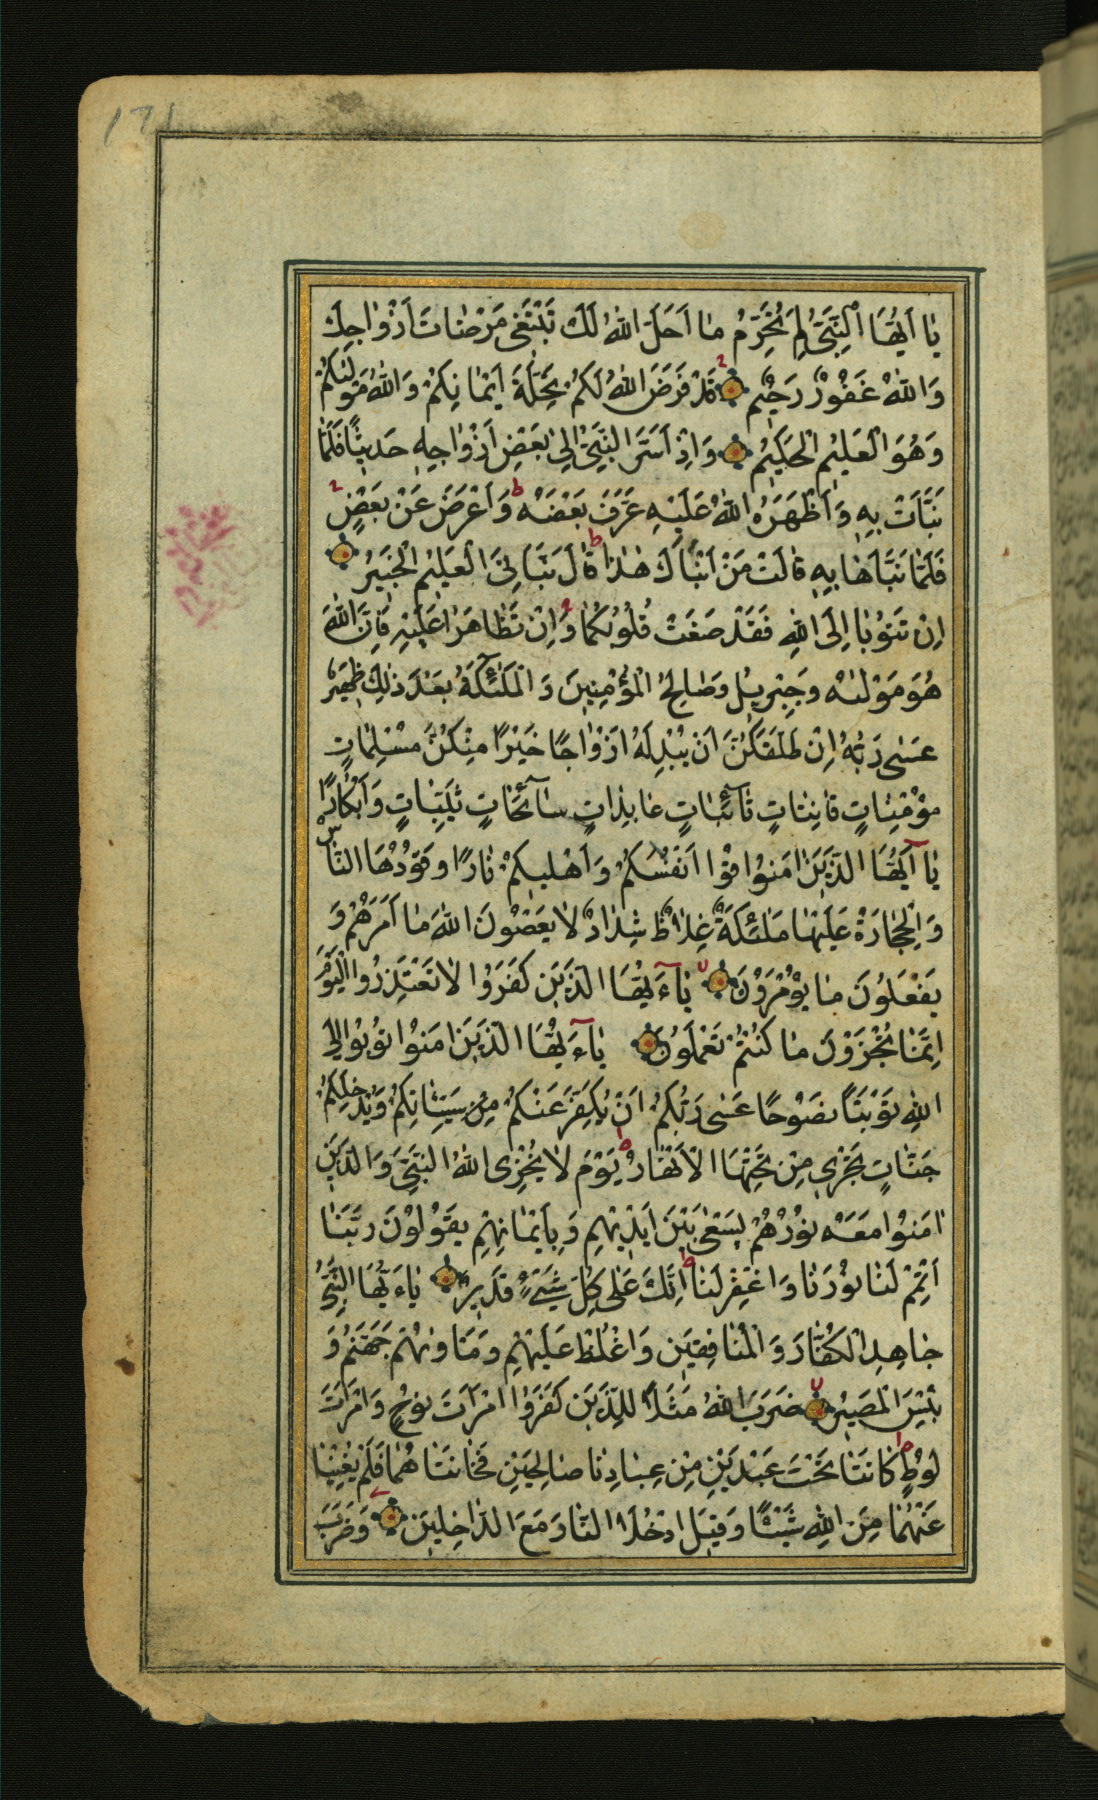 171
يا اَيُّهَا النَّبِىُّ لِمَ تُحَرِّمُ ما اَحَلَّ اللّٰهُ لَكَ تَبْتَغى مَرْضاتَ اَزْواجِكَ
وَاللّٰهُ غَفُورٌ رَحيمٌ قَدْ فَرَضَ اللّٰهُ لَكُمْ تَحِلَّةَ اَيْمانِكُمْ وَاللّٰهُ مَوْليٰكُمْ
وَهُوَ الْعَليمُ الْحَكيمُ وَاِذْ اَسَرَّ النَّبِىُّ اِلىٰ بَعْضِ اَزْواجِهِ حَديثًا فَلَمّا
نَبَّاَتْ بِهِ وَاَظْهَرَهُ اللّٰهُ عَلَيْهِ عَرَّفَ بَعْضَهُ ط وَاَعْرَضَ عَنْ بَعْضٍ
فَلَمّا نَبَّاَها بِهِ قالَتْ مَنْ اَنْبَاَكَ هٰذا ط قالَ نَبَّاَنِىَ الْعَليمُ الْخَبيرُ
اِنْ تَتُوبا اِلَى اللّٰهِ فَقَدْ صَغَتْ قُلُوبُكُما وَاِنْ تَظاهَرا عَلَيْهِ فَاِنَّ اللّٰهَ
هُوَ مَوْليٰهُ وَجِبْريلُ وَصالِحُ الْمُؤْمِنينَ وَالْمَلٰئِكَةُ بَعْدَ ذٰلِكَ ظَهيرٌ
عَسىٰ رَبُّهُ اِنْ طَلَّقَكُنَّ اَنْ يُبْدِلَهُ اَزْواجًا خَيْرًا مِنْكُنَّ مُسْلِماتٍ
مُؤْمِناتٍ قانِتاتٍ تآئِباتٍ عابِداتٍ سآئِحاتٍ ثَيِّباتٍ وَاَبْكارًا
يا اَيُّهَا الَّذينَ امَنُوا قُوا اَنْفُسَكُمْ وَاَهْليكُمْ نارًا وَقُودُهَا النّاسُ
وَالْحِجارَةُ عَلَيْها مَلٰئِكَةٌ غِلاظٌ شِدادٌ لا يَعْصُونَ اللّٰهَ ما اَمَرَهُمْ وَ
يَفْعَلُونَ ما يُؤْمَرُونَ يآءَيُّهَا الَّذينَ كَفَرُوا لا تَعْتَذِرُوا الْيَوْمَ
اِنَّما تُجْزَوْنَ ما كُنْتُمْ تَعْمَلُونَ يآءَيُّهَا الَّذينَ امَنُوا تُوبُوا اِلَى
اللّٰهِ تَوْبَتًا نَصُوحًا عَسىٰ رَبُّكُمْ اَنْ يُكَفِّرَ عَنْكُمْ مِنْ سَيِّئاتِكُمْ وَيُدْخِلَكُمْ
جَنّاتٍ تَجْرى مِنْ تَحْتِهَا الْاَنْهارُ يَوْمَ لا يُخْزِى اللّٰهُ النَّبِىَّ وَالَّذينَ
امَنُوا مَعَهُ نُورُهُمْ يَسْعىٰ بَيْنَ اَيْديهِمْ وَبِاَيْمانِهِمْ يَقُولُونَ رَبَّنا
اَتْمِمْ لَنا نُورَنا وَاغْفِرْ لَنا ط اِنَّكَ عَلىٰ كُلِّ شَىْءٍ قَديرٌ ياءَيُّهَا النَّبِىُّ
جاهِدِ الْكُفّارَ وَالْمُنافِقينَ وَاغْلُظْ عَلَيْهِمْ وَمَاْويٰهُمْ جَهَنَّمُ وَ
بِئْسَ الْمَصيرُ ضَرَبَ اللّٰهُ مَثَلاً لِلَّذينَ كَفَرُوا امْرَاَتَ نُوحٍ وَامْرَاَتَ
لُوطٍ ط كانَتا تَحْتَ عَبْدَيْنِ مِنْ عِبادِنا صالِحَيْنِ فَخانَتاهُما فَلَمْ يُغْنِيا
عَنْهُما مِنَ اللّٰهِ شَيْئًا وَقيلَ ادْخُلَا النّارَ مَعَ الدّاخِلينَ وَضَرَبَ